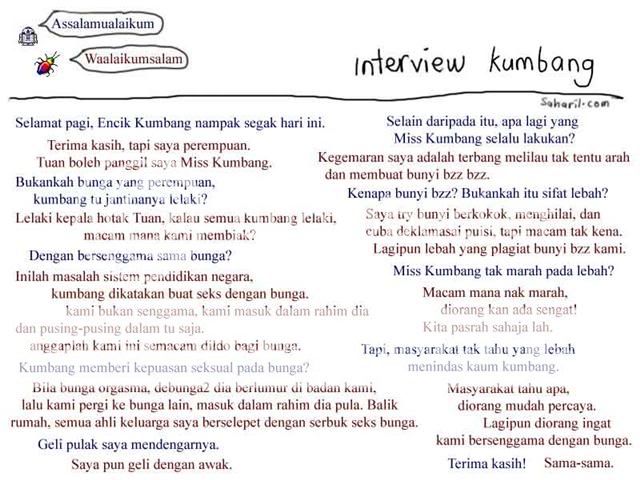 Assalamualaikum
Waalaikumsalam
interview kumbang
Saharil.com
Selamat pagi, Encik Kumbang nampak segak hari ini.
Terima kasih, tapi saya perempuan.
Tuan boleh panggil saya Miss Kumbang.
Bukankah bunga yang perempuan,
kumbang tu jantinanya lelaki?
Lelaki kepala hotak Tuan, kalau semua kumbang lelaki,
macam mana kami membiak?
Dengan bersenggama sama bunga?
Inilah masalah sistem pendidikan negara,
kumbang dikatakan buat seks dengan bunga.
kami bukan senggama, kami masuk dalam rahim dia
dan pusing-pusing dalam tu saja.
anggaplah kami ini semacam dildo bagi bunga.
Kumbang memberi kepuasan seksual pada bunga?
Bila bunga orgasma, debunga2 dia berlumur di badan kami,
lalu kami pergi ke bunga lain, masuk dalam rahim dia pula. Balik
rumah, semua ahli keluarga saya berselepet dengan serbuk seks bunga.
Geli pulak saya mendengarnya.
Saya pun geli dengan awak.
Selain daripada itu, apa lagi yang
Miss Kumbang selalu lakukan?
Kegemaran saya adalah terbang melilau tak tentu arah
dan membuat bunyi bzz bzz.
Kenapa bunyi bzz? Bukankah itu sifat lebah?
Saya try bunyi berkokok, menghilai, dan
cuba deklamasai puisi, tapi macam tak kena.
Lagipun lebah yang plagiat bunyi bzz kami.
Miss Kumbang tak marah pada lebah?
Macam mana nak marah,
diorang kan ada sengat!
Kita pasrah sahaja lah.
Tapi, masyarakat tak tahu yang lebah
menindas kaum kumbang.
Masyarakat tahu apa,
diorang mudah percaya.
Lagipun diorang ingat
kami bersenggama dengan bunga.
Terima kasih! Sama-sama.